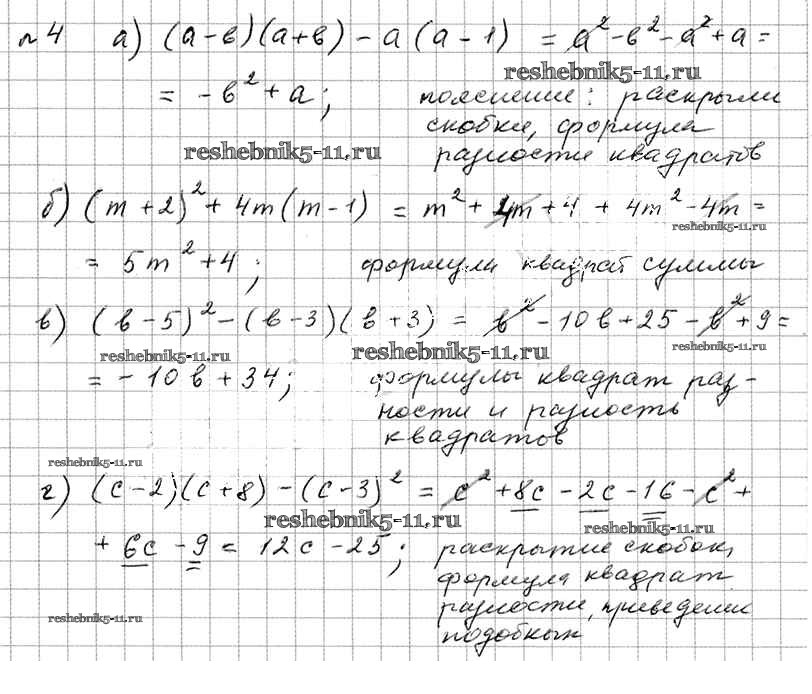 №4 а) (a-b)(a+b) - a(a-1) = a² - b² - a² + a =
reshebnik5-11.ru
= -b² + a; пояснение: раскрыли
скобки, формула
reshebnik5-11.ru
разности квадратов
б) (m+2)² + 4m(m-1) = m² + 4m + 4 + 4m² - 4m =
reshebnik5-11.ru
= 5m² + 4; формула квадрат суммы
в) (b-5)² - (b-3)(b+3) = b² - 10b + 25 - b² + 9 =
reshebnik5-11.ru reshebnik5-11.ru reshebnik5-11.ru
= -10b + 34; формулы квадрат раз-
ности и разность
квадратов
reshebnik5-11.ru
г) (c-2)(c+8) - (c-3)² = c² + 8c - 2c - 16 - c² +
reshebnik5-11.ru reshebnik5-11.ru
+ 6c - 9 = 12c - 25; раскрытие скобок,
формула квадрат
разности, приведении
reshebnik5-11.ru
подобных